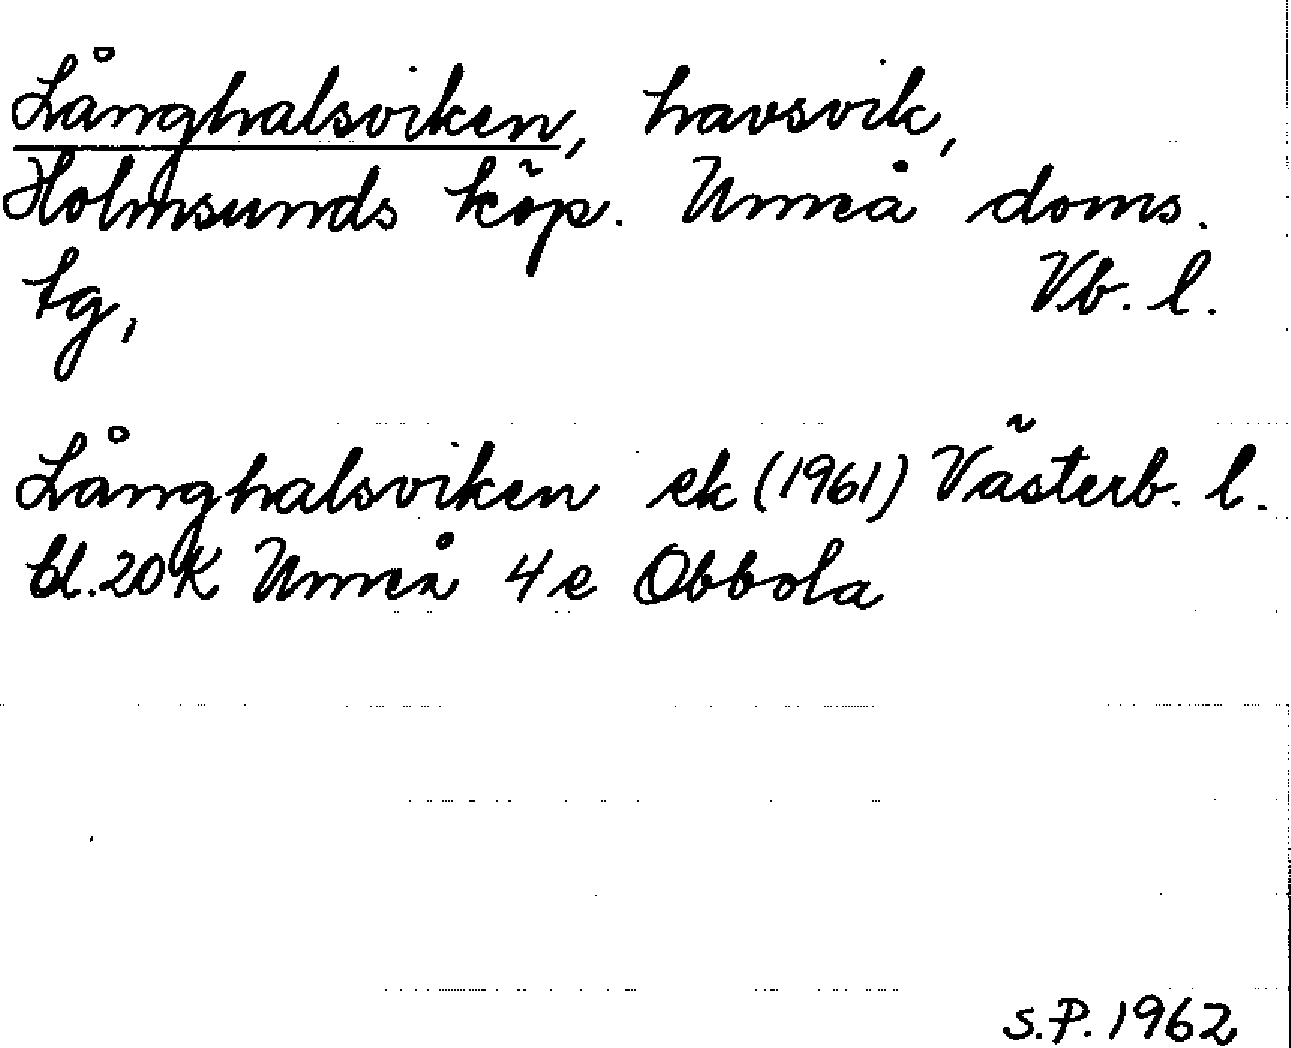 Långhalsviken, havsvik,
Holmsunds köp. Umeå doms.
tg, Vb. l.
Långhalsviken ek (1961) Västerb. l.
bl. 20K Umeå 4e Obbola
S.P. 1962